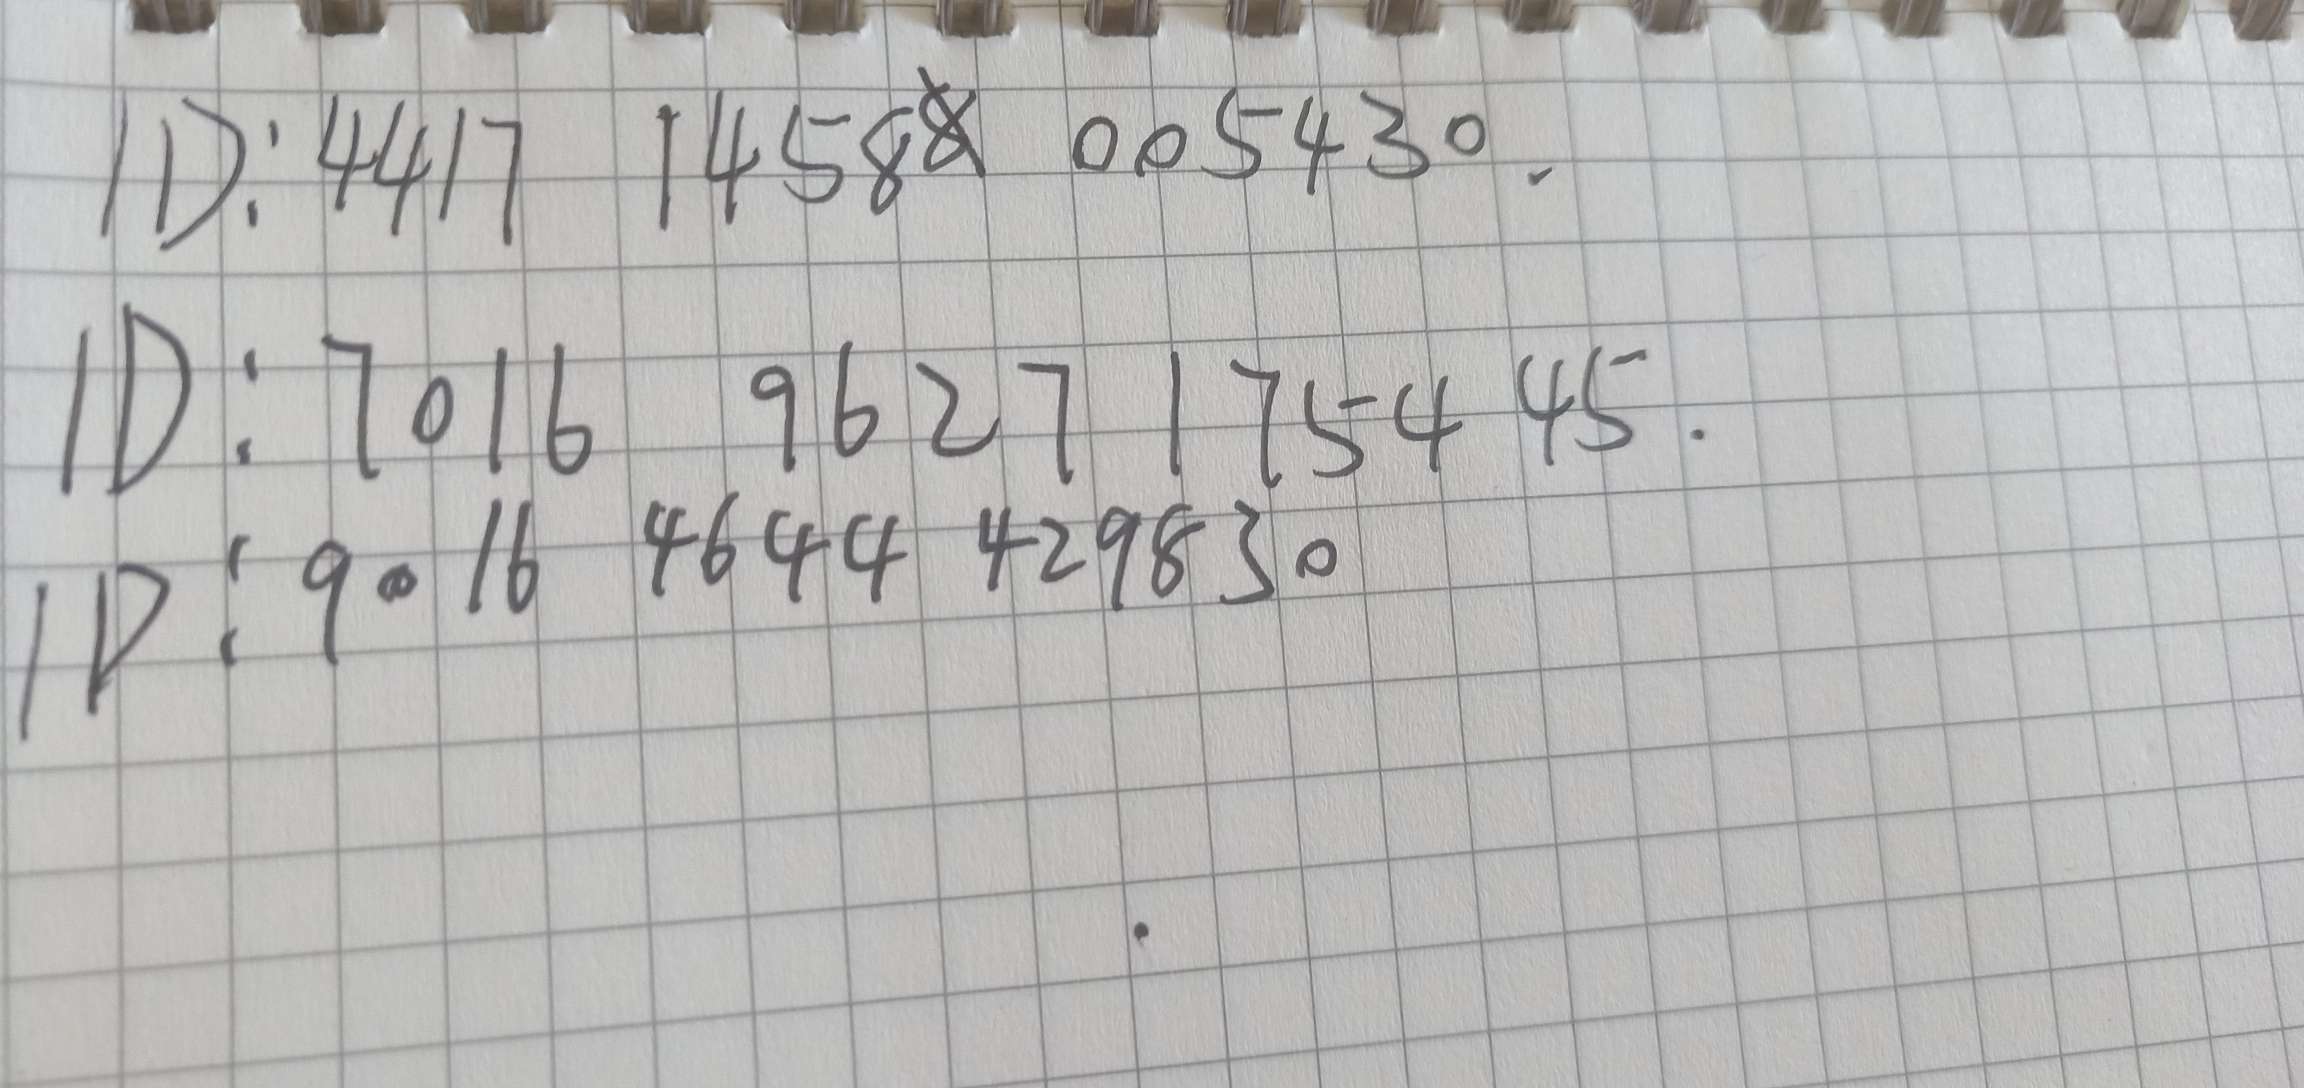 ID: 4417 14588 005430.
ID: 7016 9627 1754 45.
ID: 9016 4644 429830